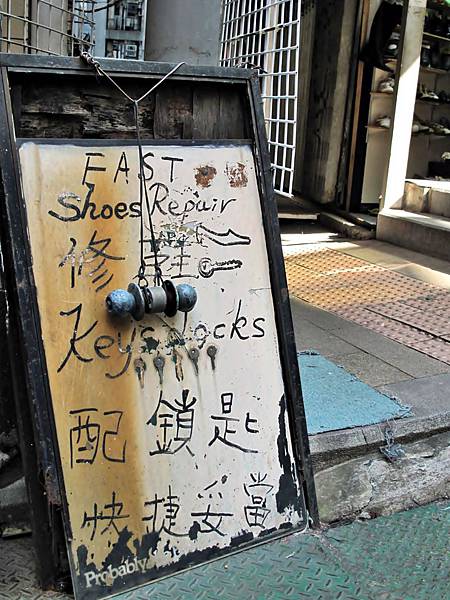 FAST
Shoes Repair
修鞋
Keys Locks
配鎖匙
快捷妥當
Probably